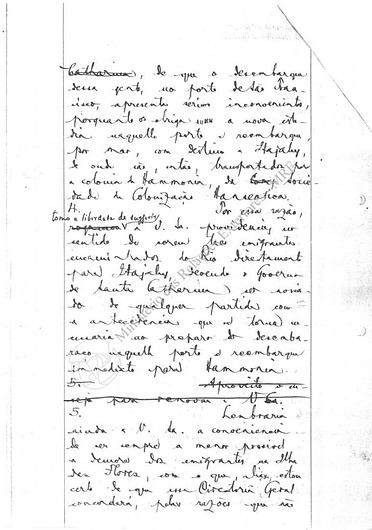 Catharina, de que o desembarque
dessa gente, no porto de São Fran-
cisco, apresenta serios inconvenientes,
porquanto os obriga a nova esta-
dia naquelle porto e reembarque,
por mar, com destino a Itajahy,
de onde são, então, transportados para
a colonia de Hammonia, da Socie-
dade de Colonização Hanseatica.
4. Por essa razão,
tomo a liberdade de suggerir
a V. Sa. providencias no
sentido de serem taes emigrantes
encaminhados do Rio directamente
para Itajahy, devendo o Governo
de Santa Catharina ser avisa-
do de qualquer partida com
a antecedencia que se torna ne-
cessaria ao preparo do desemba-
raço naquelle porto e reembarque
immediato para Hammonia.
5. Aproveito o en-
sejo para renovar a V. Sa.
5. Lembraria
ainda a V. Sa. a conveniencia
de ser sempre a menor possivel
a demora dos emigrantes na Ilha
das Flores, com o que, aliás, estou
certo de que essa Directoria Geral
concordará, pelas razões que são